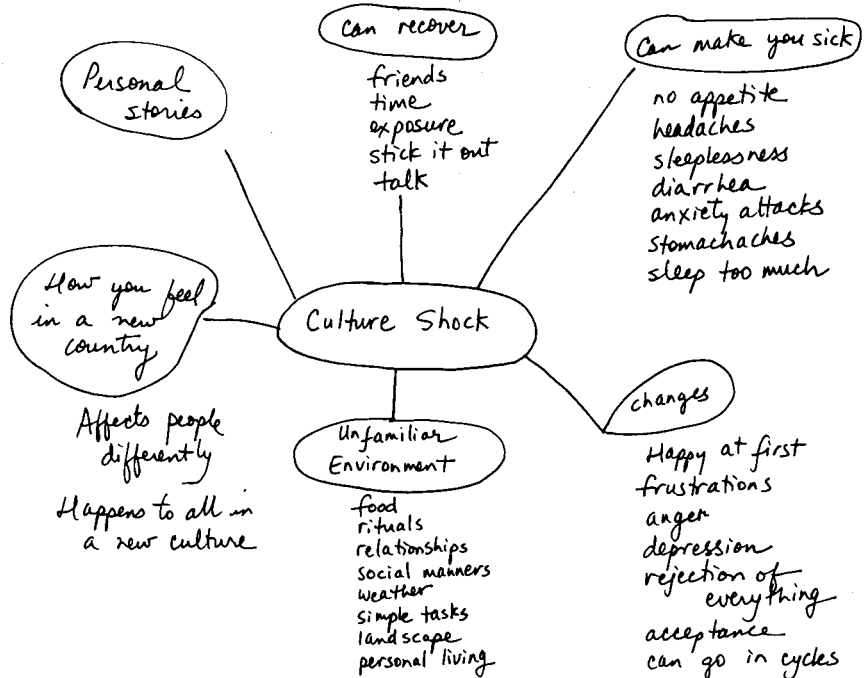 Personal
stories
can recover
friends
time
exposure
stick it out
talk
Can make you sick
no appetite
headaches
sleeplessness
diarrhea
anxiety attacks
stomachaches
sleep too much
How you feel
in a new
country
Affects people
differently
Happens to all in
a new culture
Culture Shock
Unfamiliar
Environment
food
rituals
relationships
social manners
weather
simple tasks
landscape
personal living
changes
Happy at first
frustrations
anger
depression
rejection of
everything
acceptance
can go in cycles